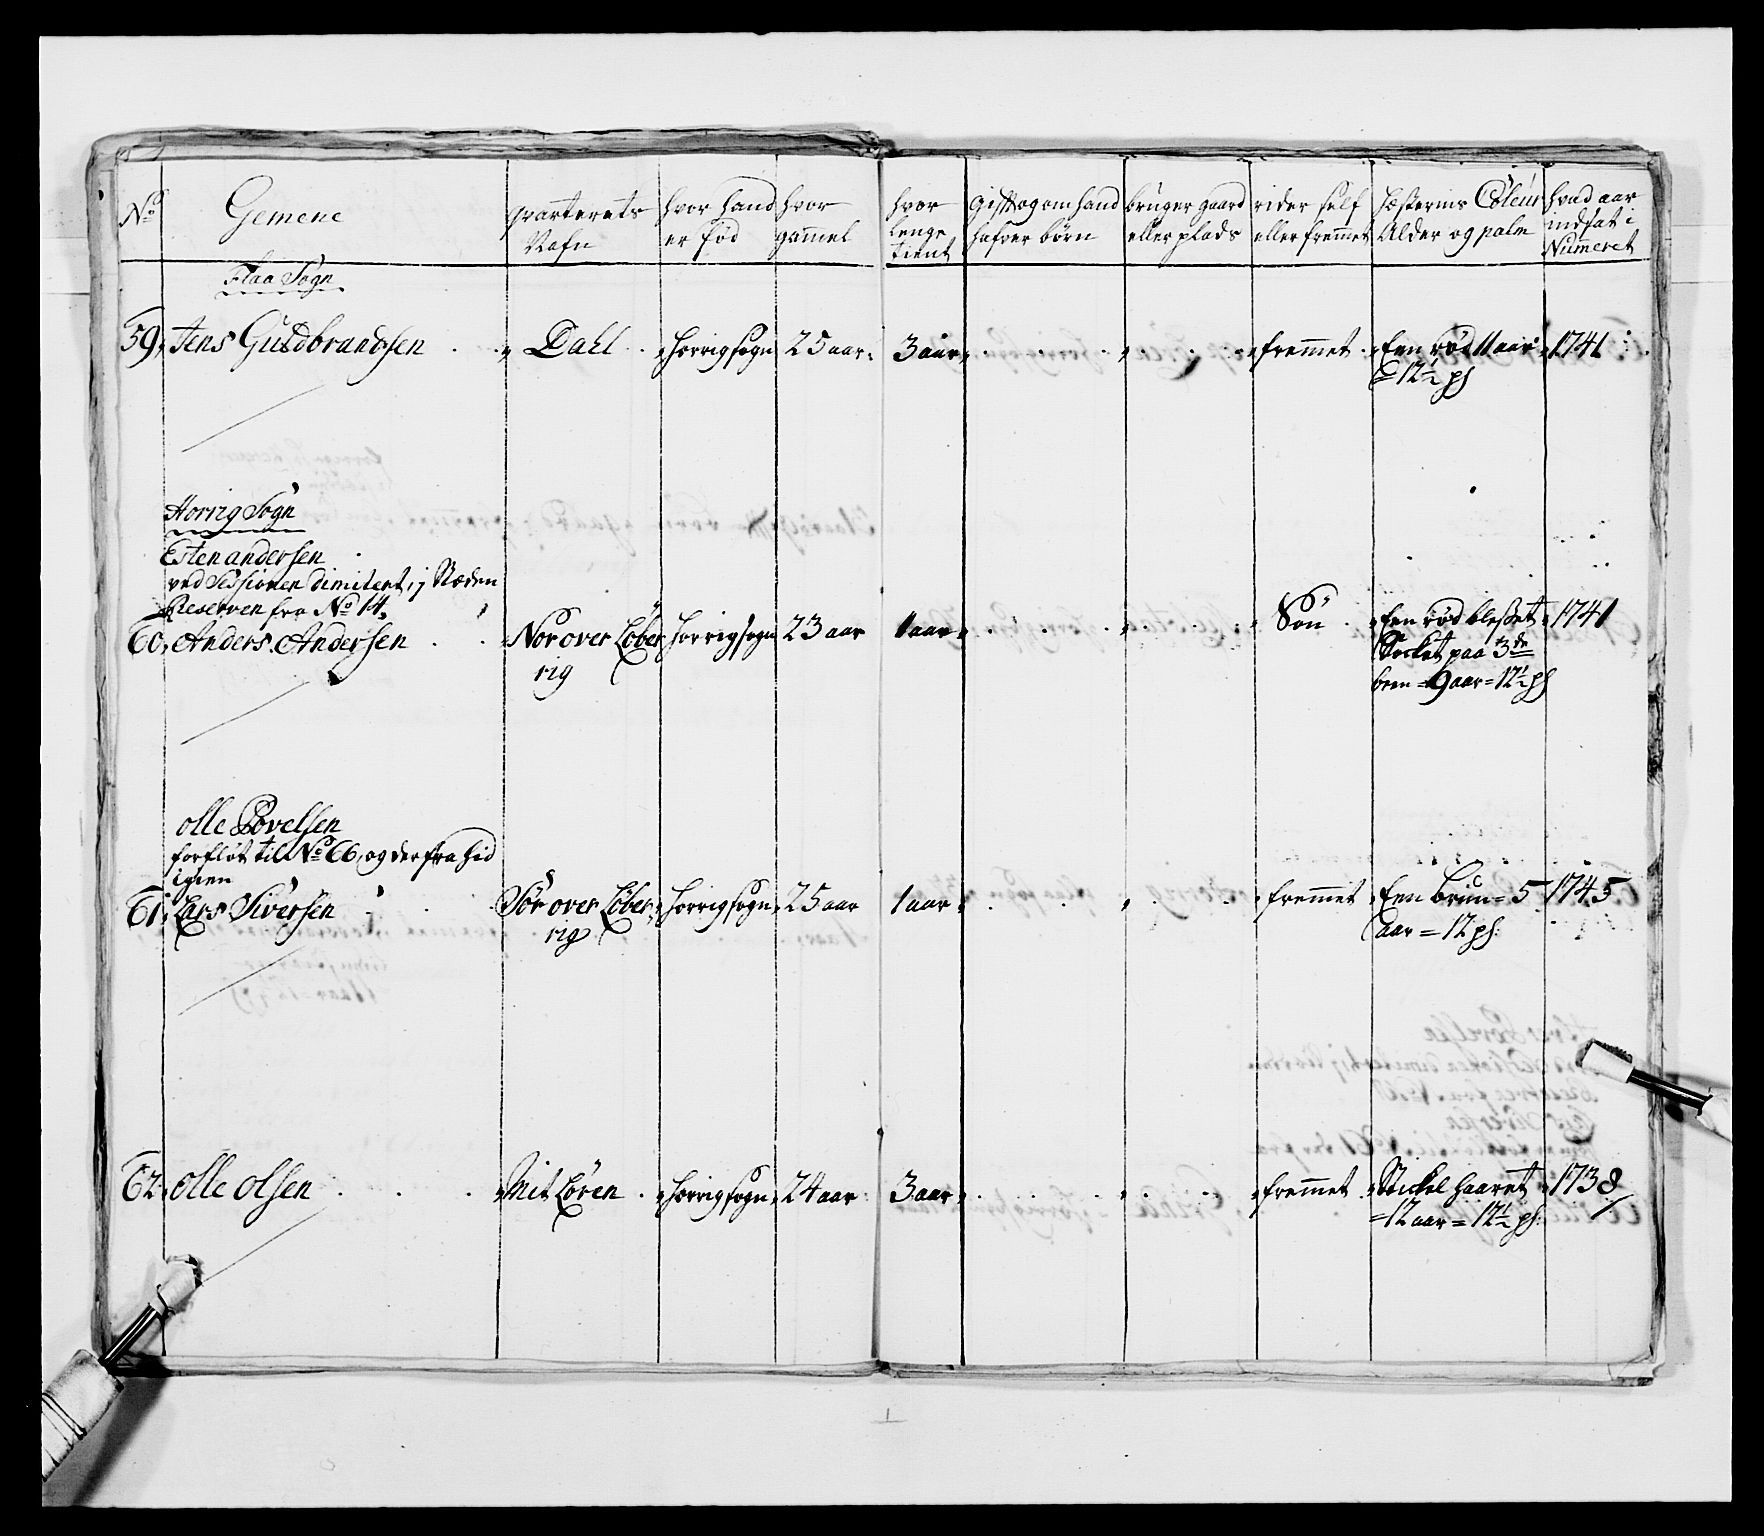 No Gemene qvarterets Nafn hvor hand er fød hvor gammel hvor lenge tient Gifft og om hand hafver børn bruger gaard eller plads rider self eller fremmet hæsternis Coleur Alder og palm hvad aar indsat i Numeret
Flaa Sogn
59, Jens Guldbrandsen Dahl Horrig sogn 25 aar 3 aar fremmet Een rød 11 aar 1741
= 12½ ps
Horrig Sogn
Esten andersen
ved Sessionen dimitert, j Steden
Reserven fra No 14,
60, Anders Andersen Nor over Løber Horrig sogn 23 aar 1 aar Søn Een rød blesset 1741
rig Socket paa 3de
been = 9 aar = 12½ ps
olle Povelsen
forfløt til No 66, og derfra hid
igien
61, Lars Siversen Sør over Løber Horrig sogn 25 aar 1 aar fremmet Een brun = 5 1745
rig aar = 12 ps:
62, olle olsen Mit Løren Horrig sogn 24 aar 3 aar fremmet Stickel haaret 1738
= 12 aar = 12½ ps: